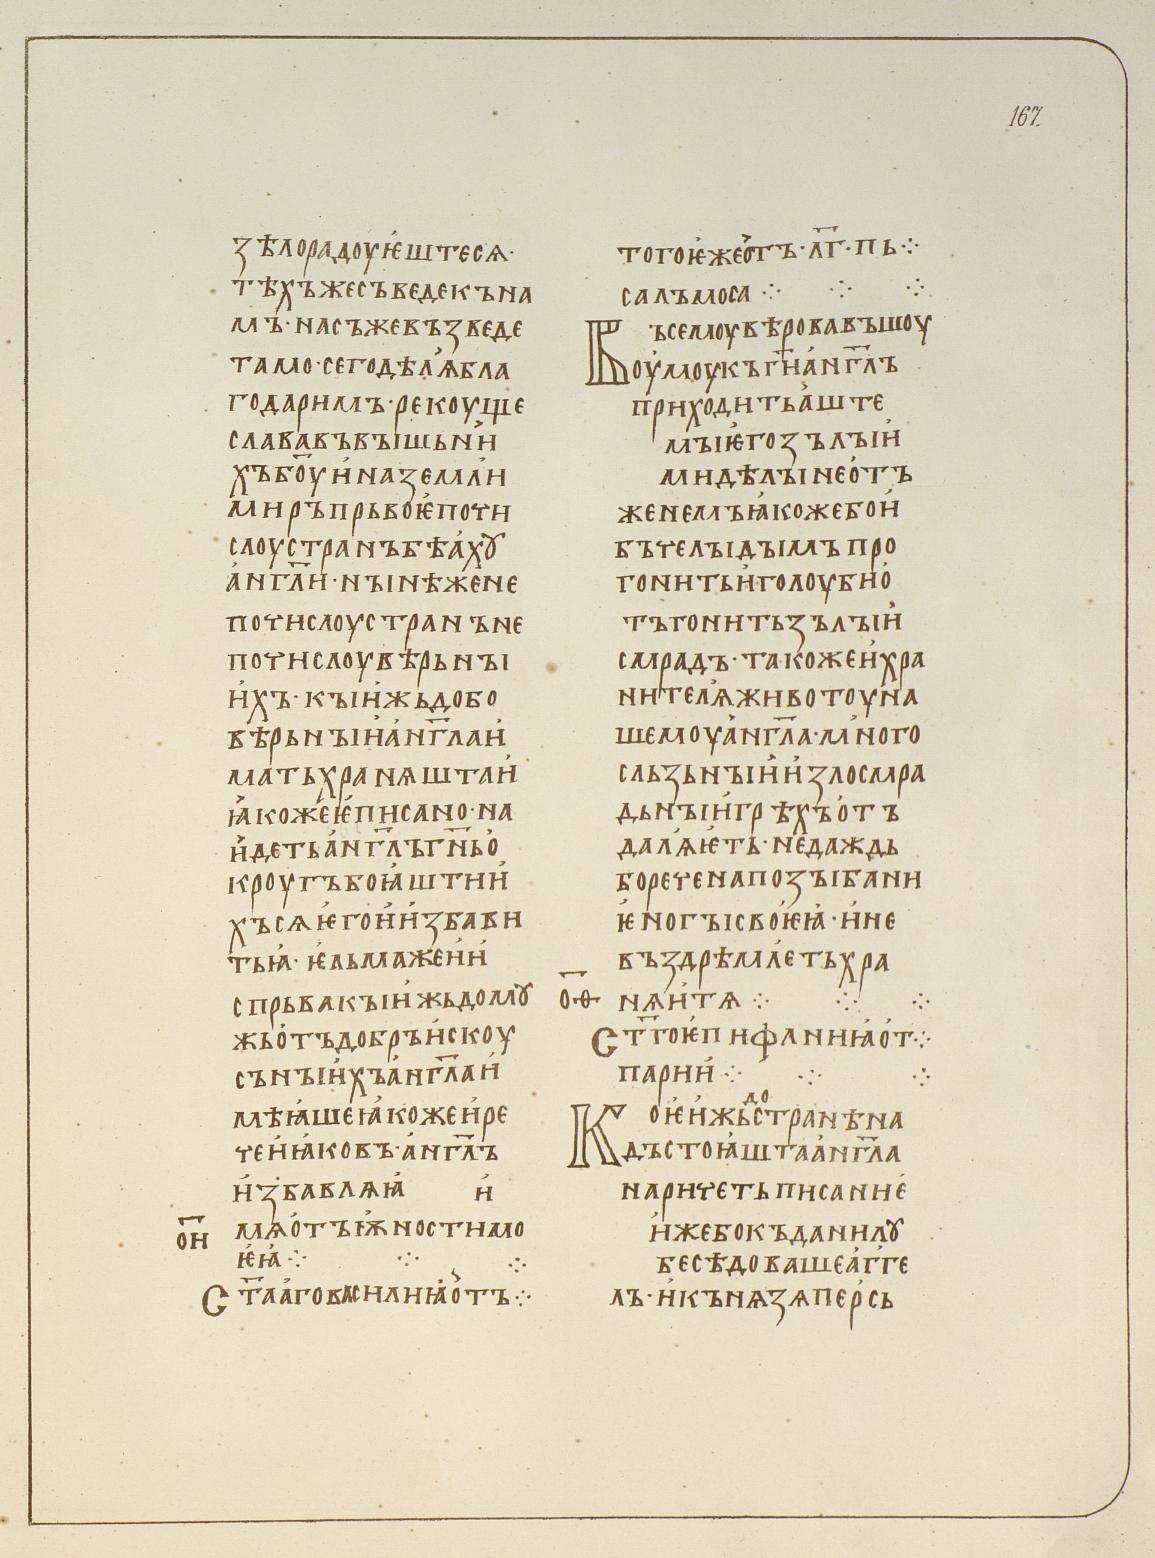 167.
зѣлорадоуѥштеся·
тѣхъжесъведекъна
мъ·насъжевъзведе
тамо·сегодѣлꙗбла
годаримъ·рекоуще
слававъвꙑшьнꙇи
хъбо҃уиназемли
миръпрьвоѥпоти
слоустранъбѣахꙋ
анг҃ли·нꙑнѣжене
потислоустранъне
потислоувѣрьнꙑ
ихъ·кꙑижьдобо
вѣрьнꙑиан҃глаи
матьхраняштаи
ꙗкожеѥписано·на
идетьан҃глъгн҃ьо
кроугъбоꙗштии
хъсяѥгоиизбави
тьꙗ·ѥльмажеии
спрьвакꙑижьдомꙋ
жьотъдобръискоу
сънꙑихъан҃глаи
мѣꙗшеꙗкожеире
чеиꙗковъ·ан҃глъ
избавляꙗ и
о҃и мяотъѭностимо
ѥꙗ⁘ ⁘ ⁘
Ст҃ааговасилиꙗотъ⁘
тогоѥжеотъ·л҃г·пь⁘
салъмоса⁘ ⁘ ⁘
Късемоувѣровавъшоу
оумоукъгн҃ан҃глъ
приходитьаште
мꙑѥгозълꙑи
мидѣлꙑнеотъ
женемъꙗкожебои
бъчелꙑдꙑмъпро
гонитьиголоубио
тъгонитьзълꙑи
смрадъ·такожеихра
нителяживотоуна
шемоуан҃гла·много
сльзьнꙑиизлосмра
дьнꙑигрѣхъотъ
даляѥть·недаждь
боречепапозꙑбани
ѥногꙑсвоѥꙗ·ине
въздрѣмлетьхра
о҃ѳ няитя⁘ ⁘ ⁘
Ст҃гоѥпифаниꙗот⁘
парии⁘ ⁘ ⁘
Коѥижьдостранѣна
дъстоꙗштаан҃гла
наричетьписание
ижебокъданилꙋ
бесѣдовашеагге
лъ·икънязяперсь